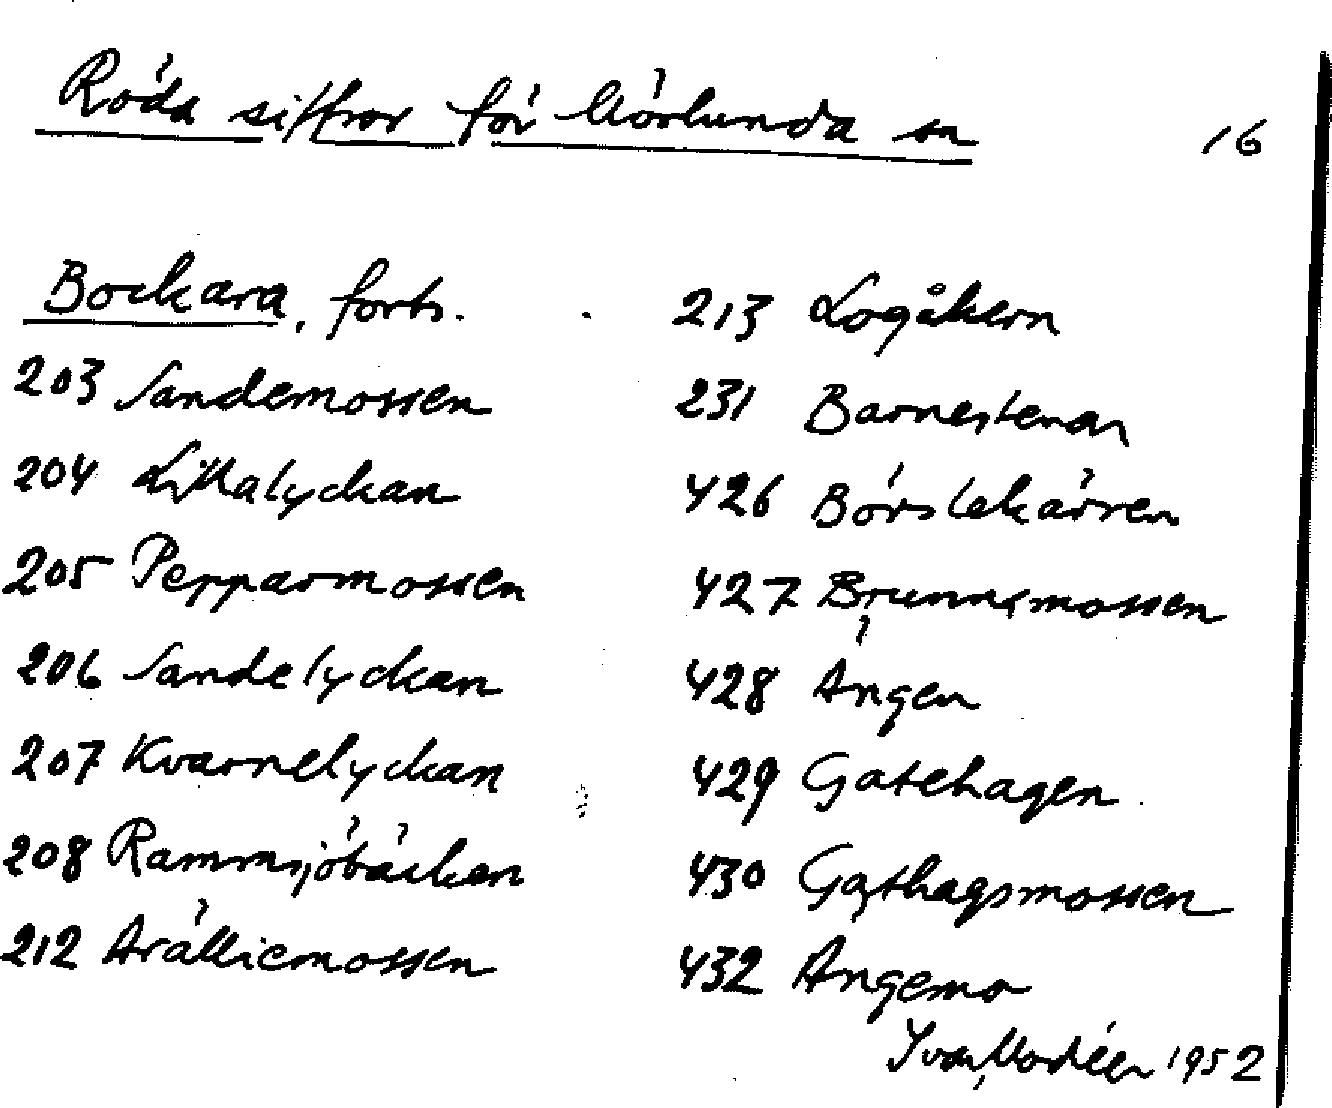 Röda siffror för Mörlunda sn
16
Bockara, forts.
203 Sandemossen
204 Lillalyckan
205 Pepparmossen
206 Sandelyckan
207 Kvarnelyckan
208 Rammsjöbäcken
212 Arälliemossen
213 Logåkern
231 Barnestenar
426 Börslekärren
427 Brunnsmossen
428 Ängen
429 Gatehagen
430 Gathagsmossen
432 Angemo
Ivar Modéer 1952